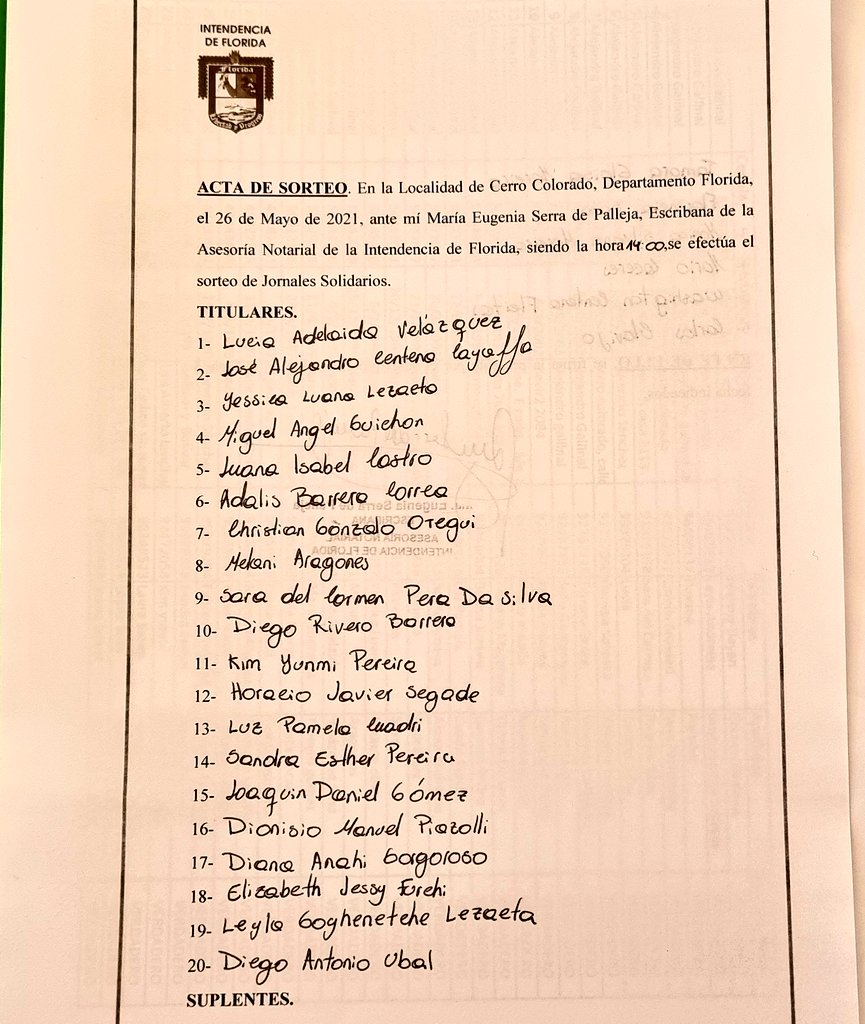 INTENDENCIA
DE FLORIDA
Florida
Libertad y Progreso
ACTA DE SORTEO. En la Localidad de Cerro Colorado, Departamento Florida,
el 26 de Mayo de 2021, ante mí María Eugenia Serra de Palleja, Escribana de la
Asesoría Notarial de la Intendencia de Florida, siendo la hora 14:00, se efectúa el
sorteo de Jornales Solidarios.
TITULARES.
1- Lucia Adelaida Velázquez
2- José Alejandro Centena Cayaffa
3- Yessica Luana Lezaeta
4- Miguel Angel Guichon
5- Juana Isabel Castro
6- Adalis Barrera Correa
7- Christian Gonzalo Oregui
8- Mekani Aragones
9- Sara del Carmen Pera Da Silva
10- Diego Rivero Barrera
11- Kim Yunmi Pereira
12- Horacio Javier Segade
13- Luz Pamela Cuadri
14- Sandra Esther Pereira
15- Joaquin Daniel Gómez
16- Dionisio Manuel Piazolli
17- Diana Anahi Gorgoroso
18- Elizabeth Jessy Furchi
19- Leyla Goghenetche Lezaeta
20- Diego Antonio Ubal
SUPLENTES.